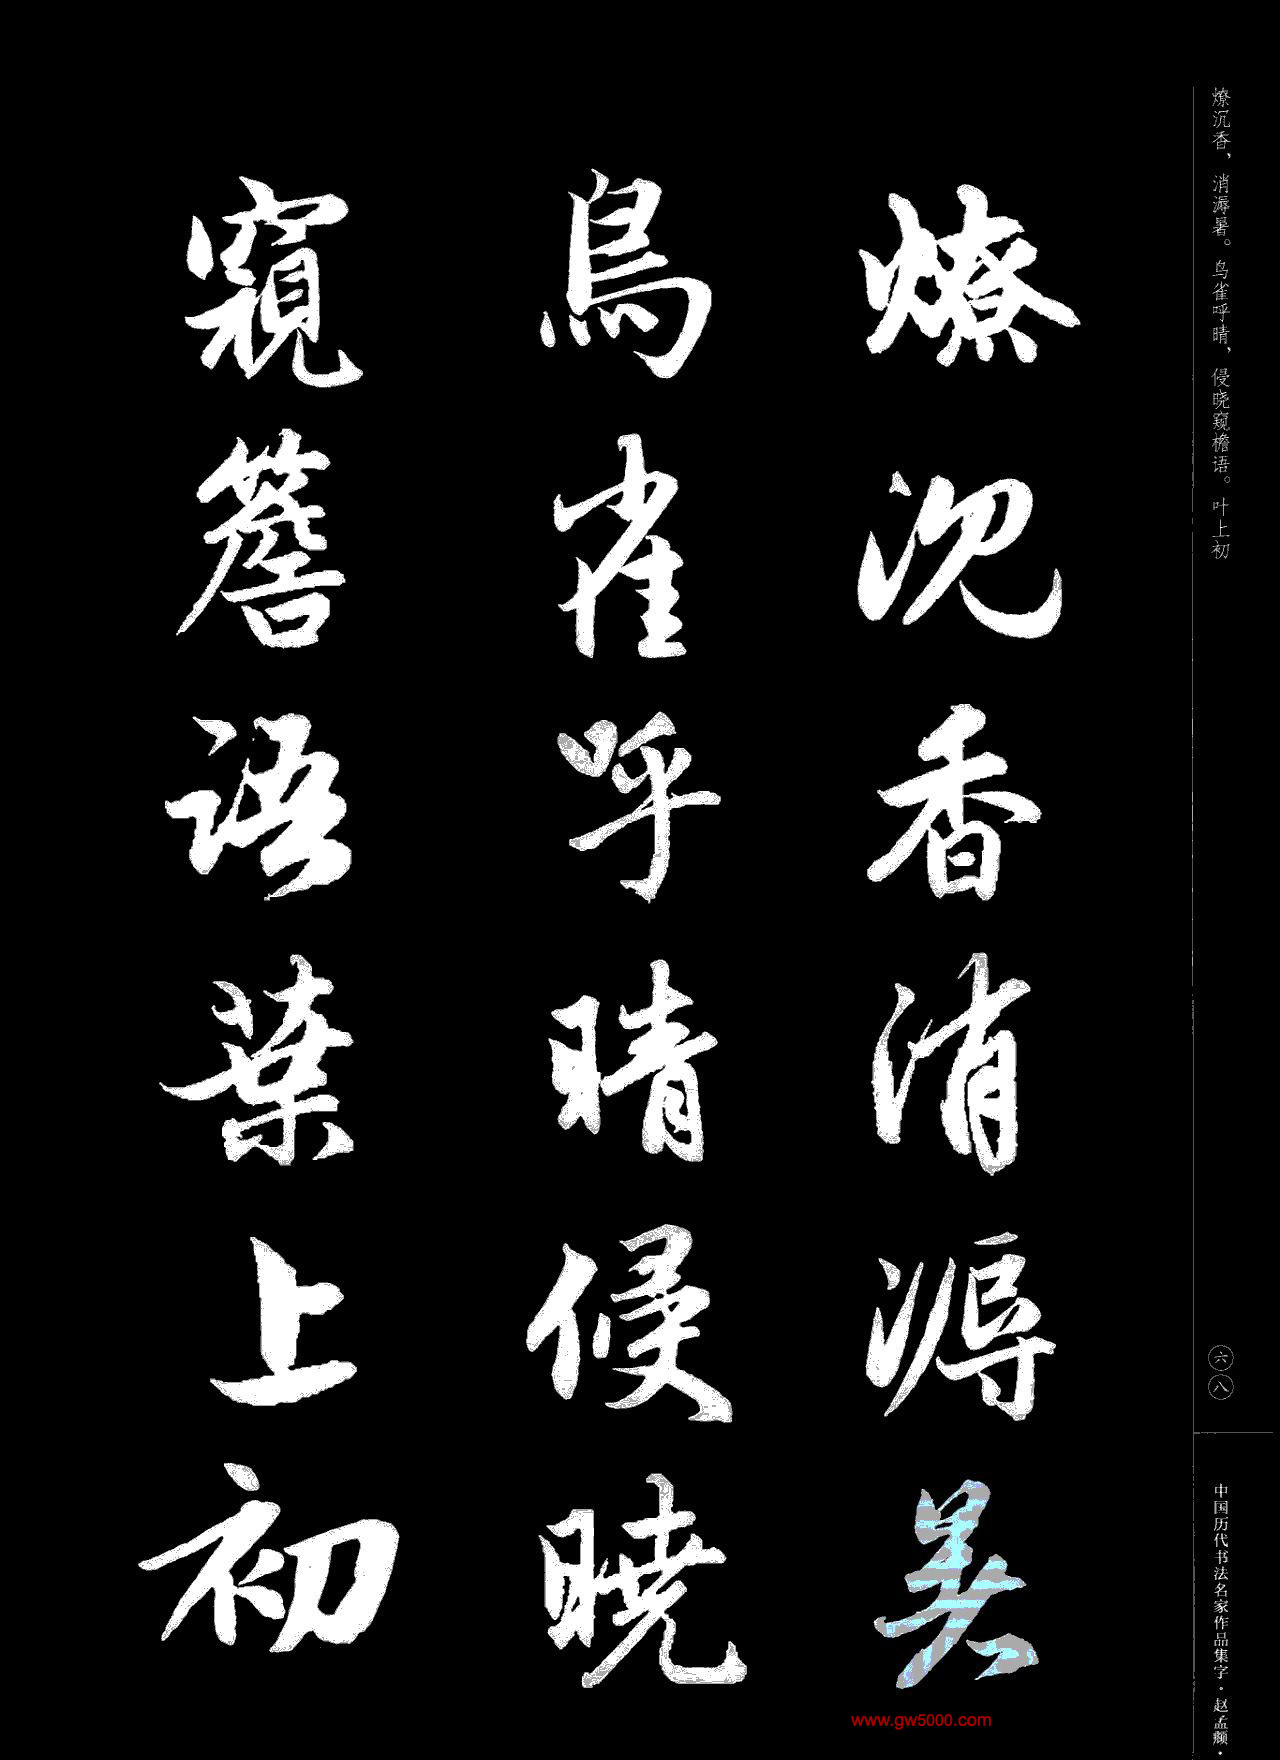 燎沉香，消溽暑。鸟雀呼晴，侵晓窥檐语。叶上初
六八
中国历代书法名家作品集字·赵孟頫·
燎沉香消溽暑
鳥雀呼晴侵曉
窺簷語葉上初
www.gw5000.com